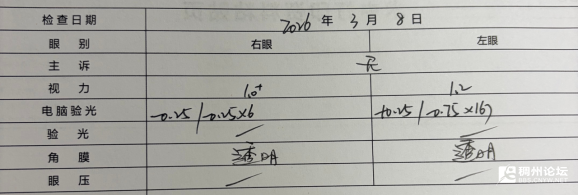 检查日期 2026 年 3 月 8 日
眼别 右眼 左眼
主诉 无
视力 1.0+ 1.2
电脑验光 -0.25/-0.25×6 +0.25/-0.75×167
验光 / /
角膜 透明 透明
眼压 / /
稠州论坛